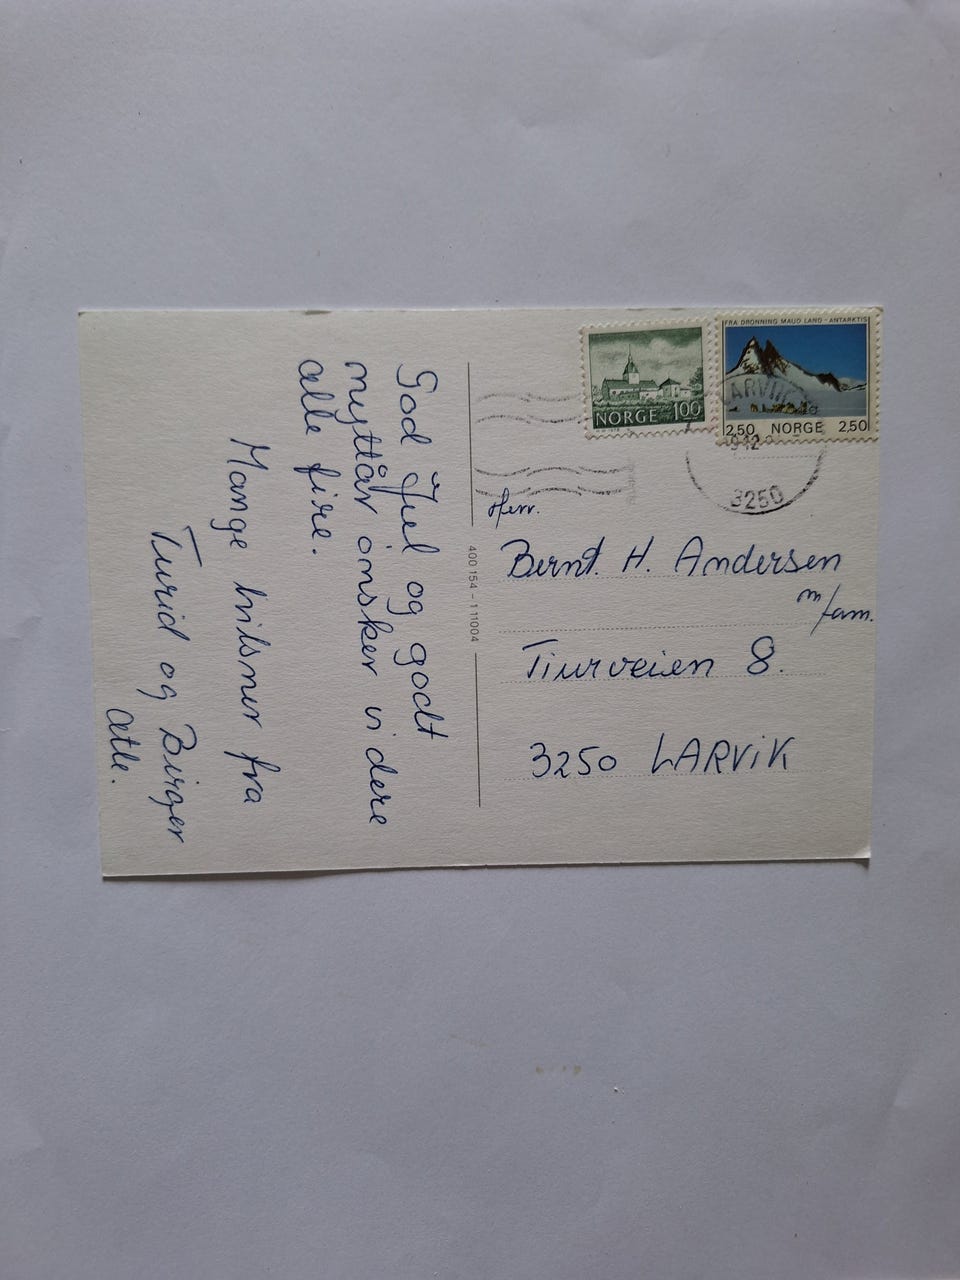 God Jul og godt
nyttår ønsker vi dere
alle fire.
Mange hilsner fra
Turid og Birger
Ætle.
400 154 - 111004
NORGE 100
FRA DRONNING MAUD LAND - ANTARKTIS
2,50 NORGE 2,50
LARVIK
3250
Herr.
Bernt. H. Andersen
m/fam.
Tiurveien 8.
3250 LARVIK